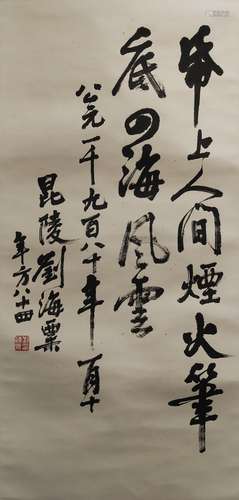 希上人间煙火筆
底四海風雲
公元一千九百八十年一百十
昆陵劉海粟
年方八十四